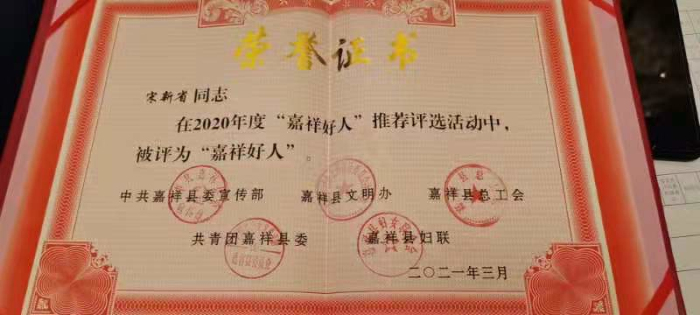 荣誉证书
宋新省 同志
在2020年度“嘉祥好人”推荐评选活动中，
被评为“嘉祥好人”。
中共嘉祥县委宣传部 嘉祥县文明办 嘉祥县总工会
共青团嘉祥县委 嘉祥县妇联
二〇二一年三月